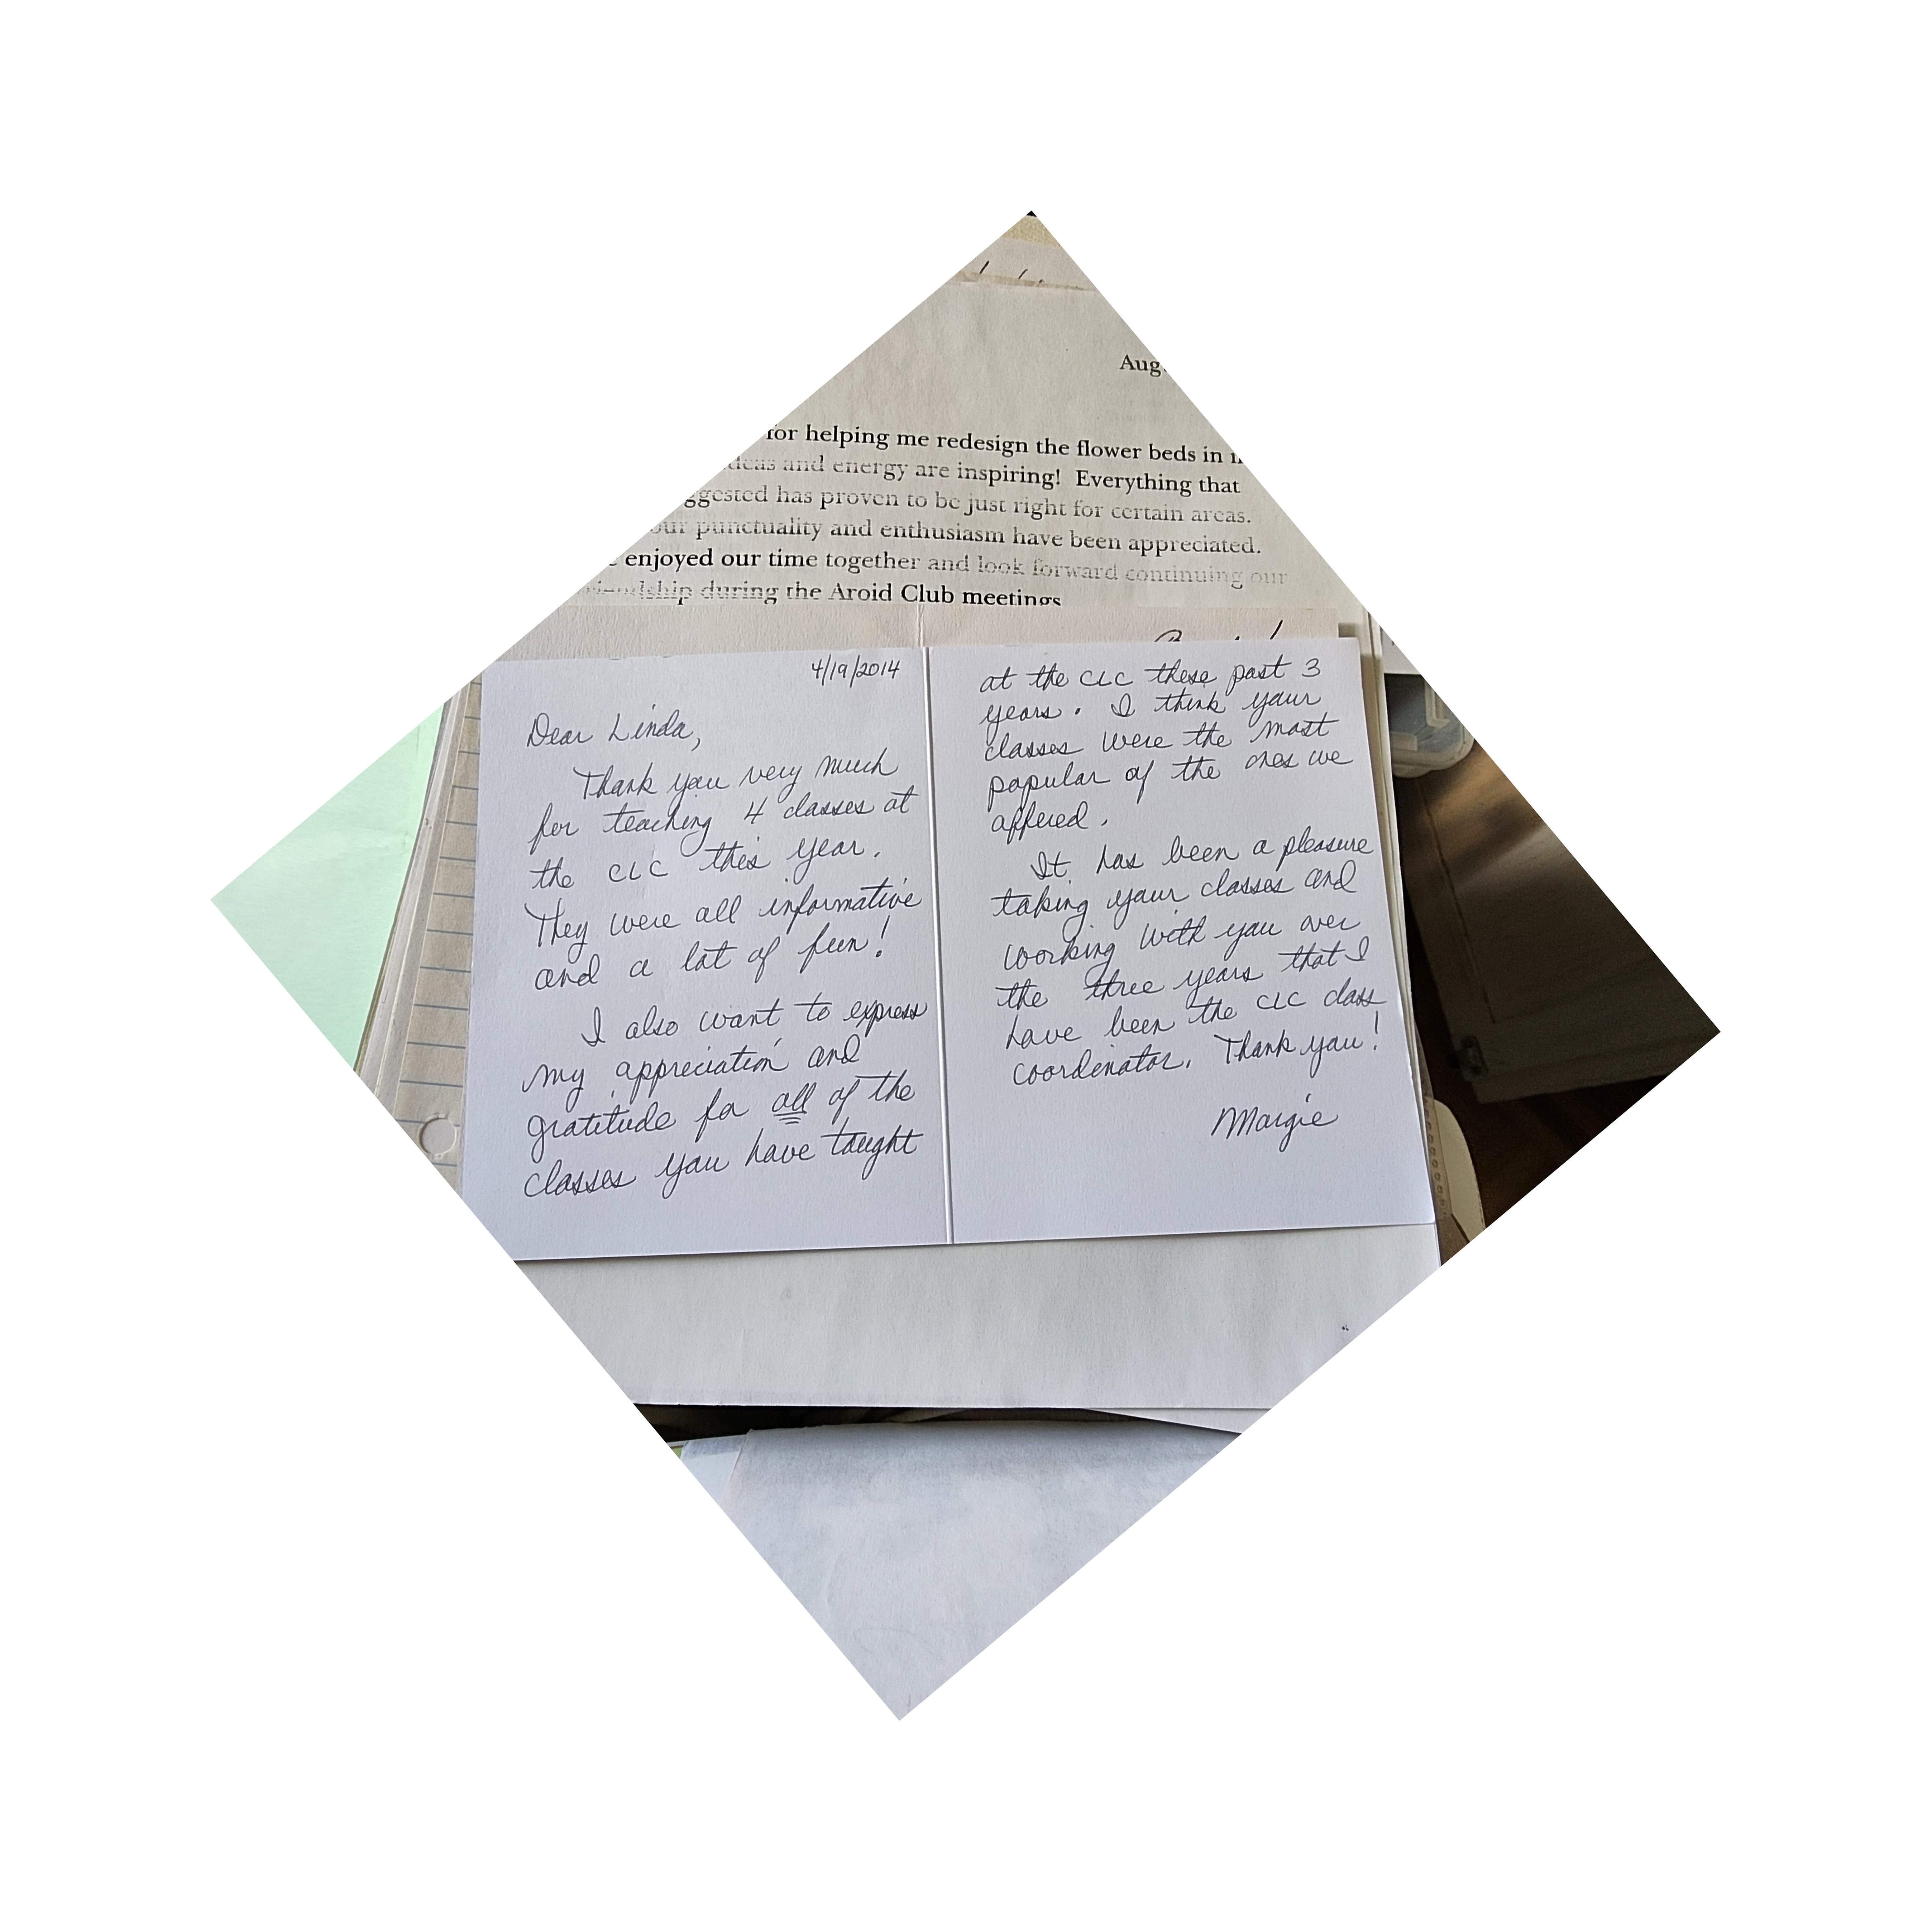 Aug.
for helping me redesign the flower beds in
ideas and energy are inspiring! Everything that
ggested has proven to be just right for certain areas.
our punctuality and enthusiasm have been appreciated.
enjoyed our time together and look forward continuing our
friendship during the Aroid Club meetings
4/19/2014
Dear Linda,
Thank you very much
for teaching 4 classes at
the CLC this year.
They were all informative
and a lot of fun!
I also want to express
my appreciation and
gratitude for all of the
classes you have taught
at the CLC these past 3
years. I think your
classes were the most
popular of the ones we
offered.
It has been a pleasure
taking your classes and
working with you over
the three years that I
have been the CLC class
coordinator. Thank you!
Margie